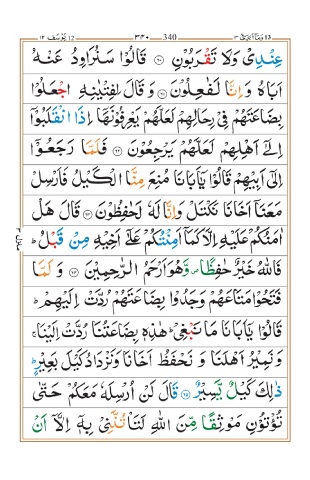 يوسف ١٢ ٣٤٠ 340 وما ابرئ ١٣
عِنْدِیْ وَلَا تَقْرَبُوْنِ ۝٦٠ قَالُوْا سَنُرَاوِدُ عَنْهُ
اَبَاهُ وَاِنَّا لَفٰعِلُوْنَ ۝٦١ وَقَالَ لِفِتْیٰنِهِ اجْعَلُوْا
بِضَاعَتَهُمْ فِیْ رِحَالِهِمْ لَعَلَّهُمْ یَعْرِفُوْنَهَاۤ اِذَا انْقَلَبُوْۤا
اِلٰۤی اَهْلِهِمْ لَعَلَّهُمْ یَرْجِعُوْنَ ۝٦٢ فَلَمَّا رَجَعُوْۤا
اِلٰۤی اَبِیْهِمْ قَالُوْا یٰۤاَبَانَا مُنِعَ مِنَّا الْكَیْلُ فَاَرْسِلْ
مَعَنَاۤ اَخَانَا نَكْتَلْ وَاِنَّا لَهٗ لَحٰفِظُوْنَ ۝٦٣ قَالَ هَلْ
اٰمَنُكُمْ عَلَیْهِ اِلَّا كَمَاۤ اَمِنْتُكُمْ عَلٰۤی اَخِیْهِ مِنْ قَبْلُ ؕ
فَاللّٰهُ خَیْرٌ حٰفِظًا وَّهُوَ اَرْحَمُ الرّٰحِمِیْنَ ۝٦٤ وَلَمَّا
فَتَحُوْا مَتَاعَهُمْ وَجَدُوْا بِضَاعَتَهُمْ رُدَّتْ اِلَیْهِمْ ؕ
قَالُوْا یٰۤاَبَانَا مَا نَبْغِیْ ؕ هٰذِهٖ بِضَاعَتُنَا رُدَّتْ اِلَیْنَا ۚ
وَنَمِیْرُ اَهْلَنَا وَنَحْفَظُ اَخَانَا وَنَزْدَادُ كَیْلَ بَعِیْرٍ ؕ
ذٰلِكَ كَیْلٌ یَّسِیْرٌ ۝٦٥ قَالَ لَنْ اُرْسِلَهٗ مَعَكُمْ حَتّٰی
تُؤْتُوْنِ مَوْثِقًا مِّنَ اللّٰهِ لَتَاْتُنَّنِیْ بِهٖۤ اِلَّاۤ اَنْ